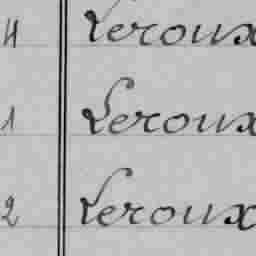 4 Leroux
1 Leroux
2 Leroux